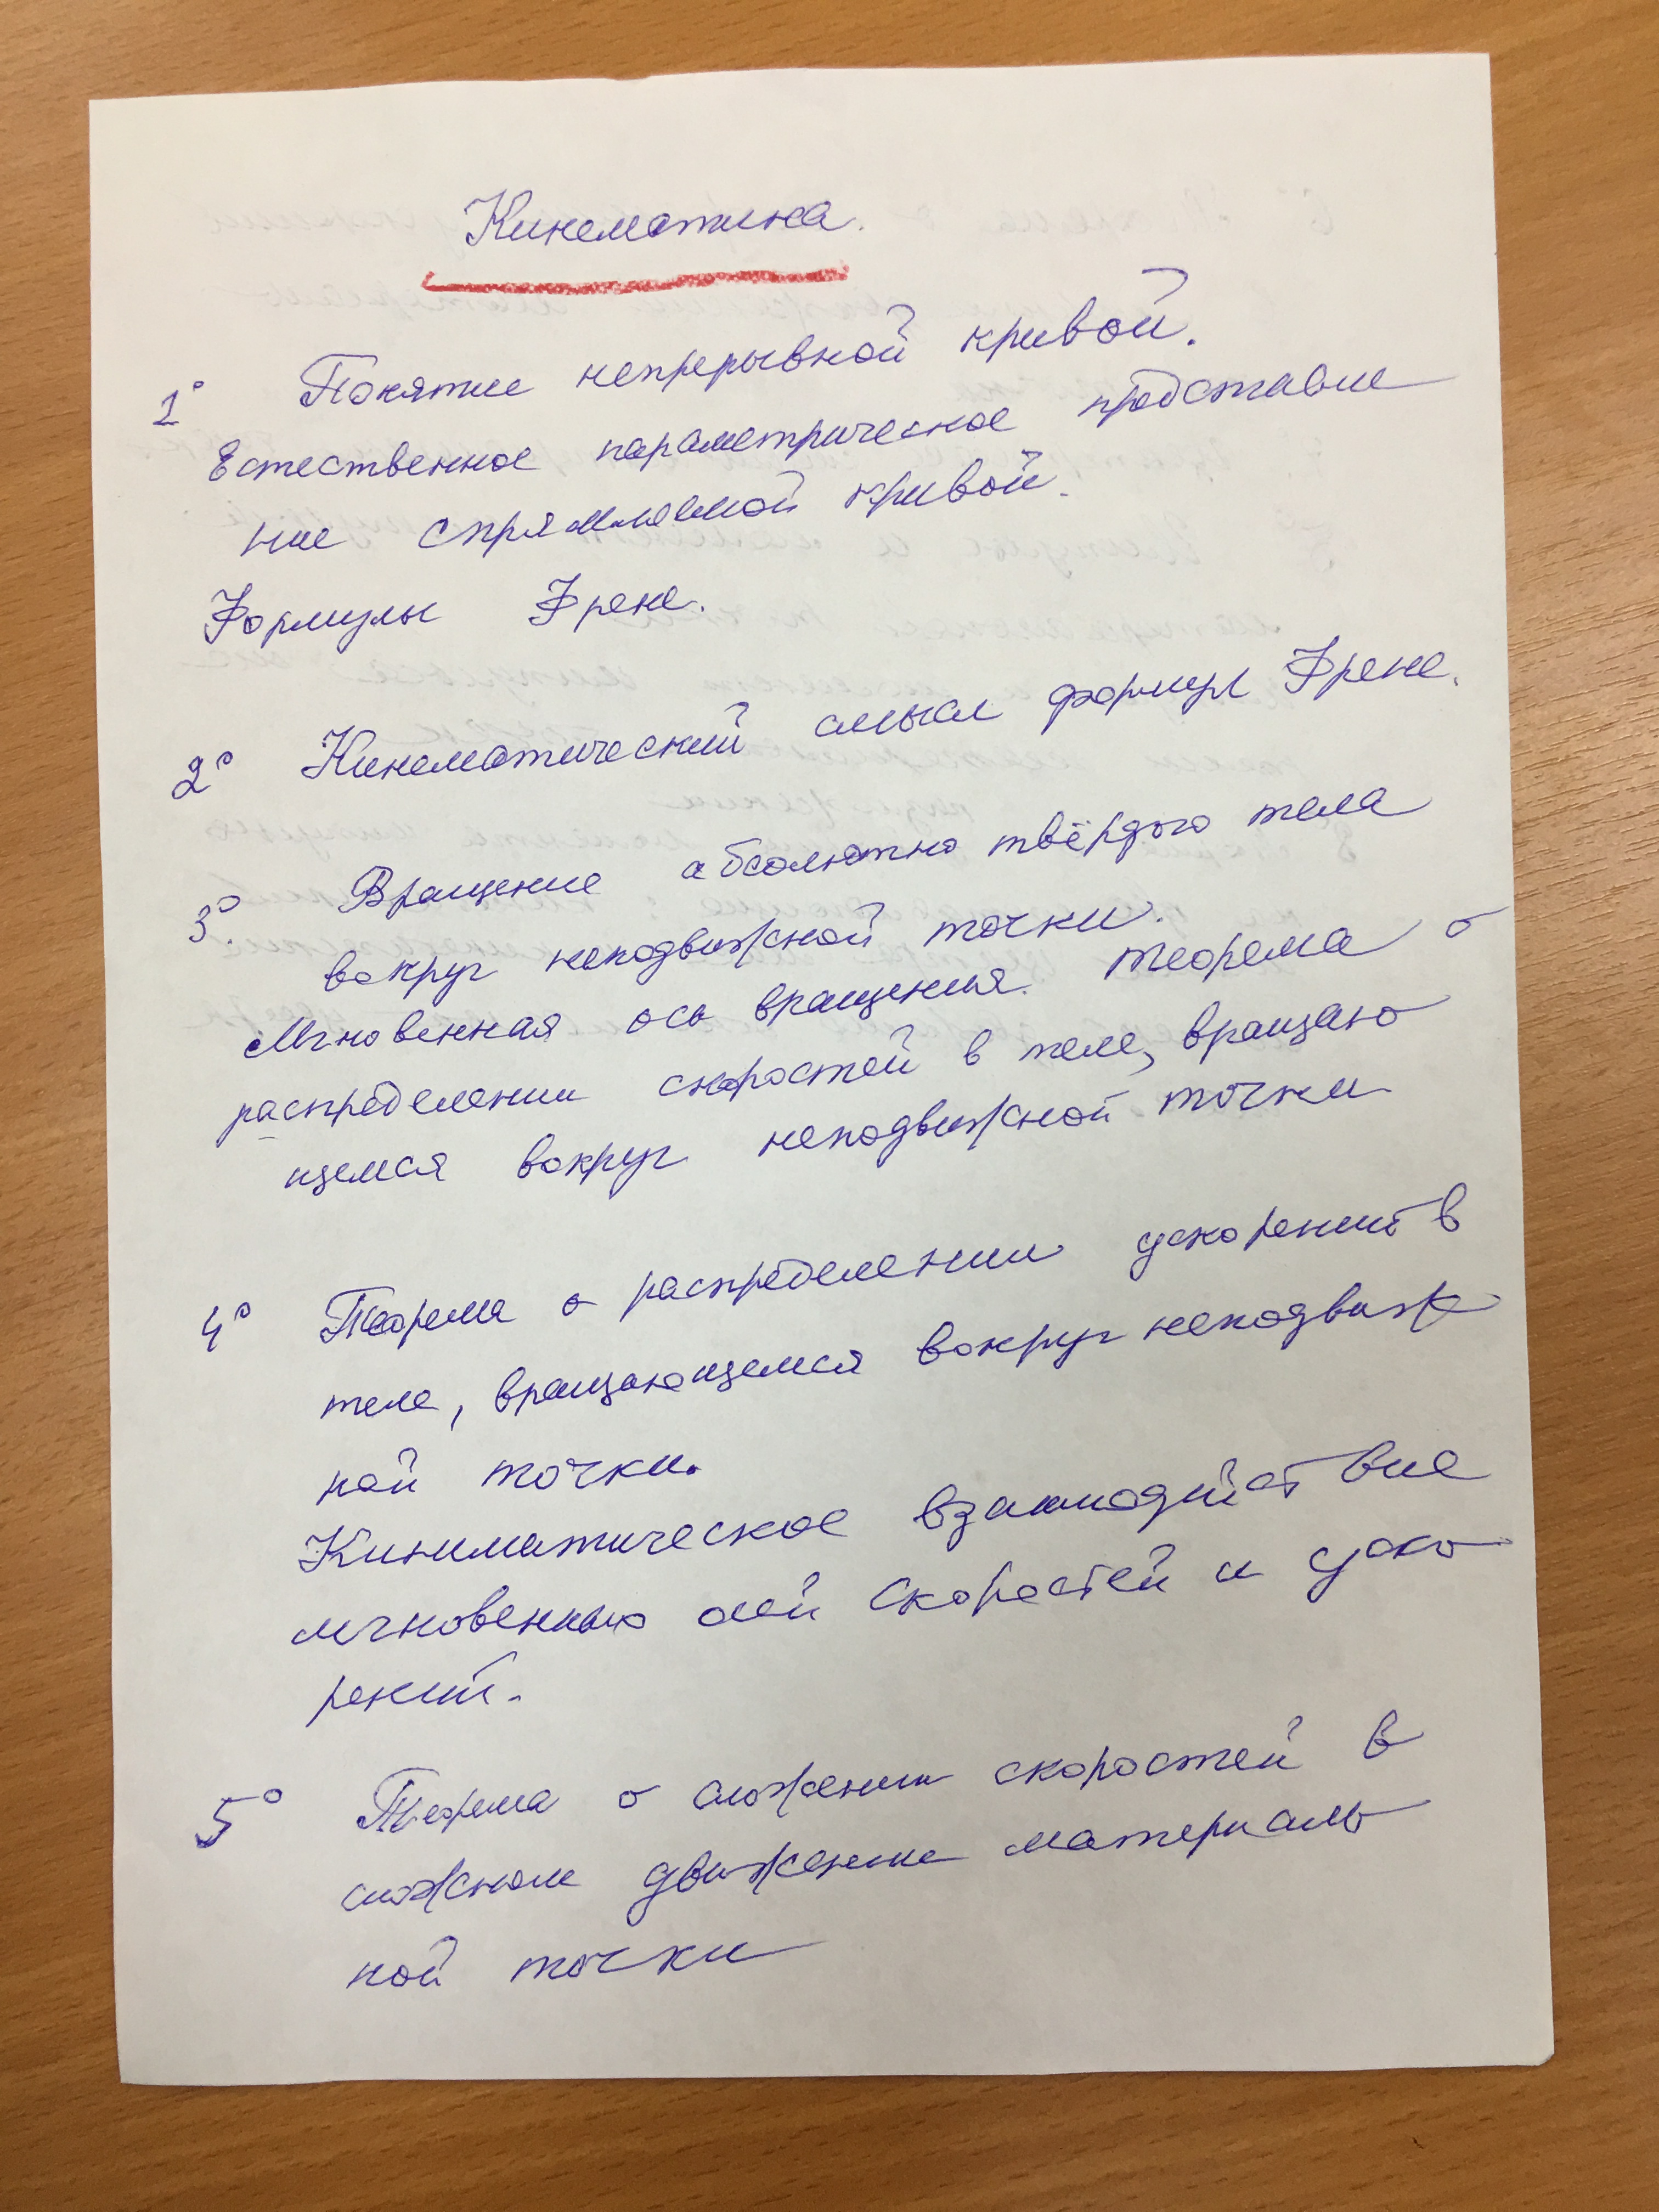 Кинематика.
1° Понятие непрерывной кривой.
Естественное параметрическое представле
ние спрямляемой кривой.
Формулы Френе.
2° Кинематический смысл формул Френе.
3°. Вращение абсолютно твёрдого тела
вокруг неподвижной точки.
Мгновенная ось вращения. Теорема о
распределении скоростей в теле, вращаю
щемся вокруг неподвижной точки
4° Теорема о распределении ускорений в
теле, вращающемся вокруг неподвиж
ной точки.
Киниматическое взаимодействие
мгновенных осей скоростей и уско
рений.
5° Теорема о сложении скоростей в
сложном движении материаль
ной точки